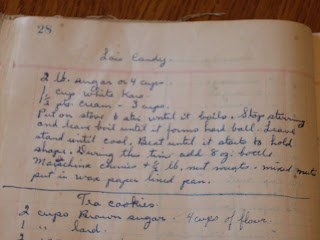 28
Lois Candy.
2 lb. sugar or 4 cups.
1 1/2 cup white Karo
1 1/2 pts. cream - 3 cups.
Put on stove & stir until it boils. Stop stirring
and leave boil until it forms hard ball. Leave
stand until cool. Beat until it starts to hold
shape. During this time add 8 oz. bottle
Maraschino cherries + 1/2 lb. nut meats - mixed nuts
put in wax paper lined pan.
Tea cookies
2 cups Brown sugar. 4 cups of flour.
1 " lard.